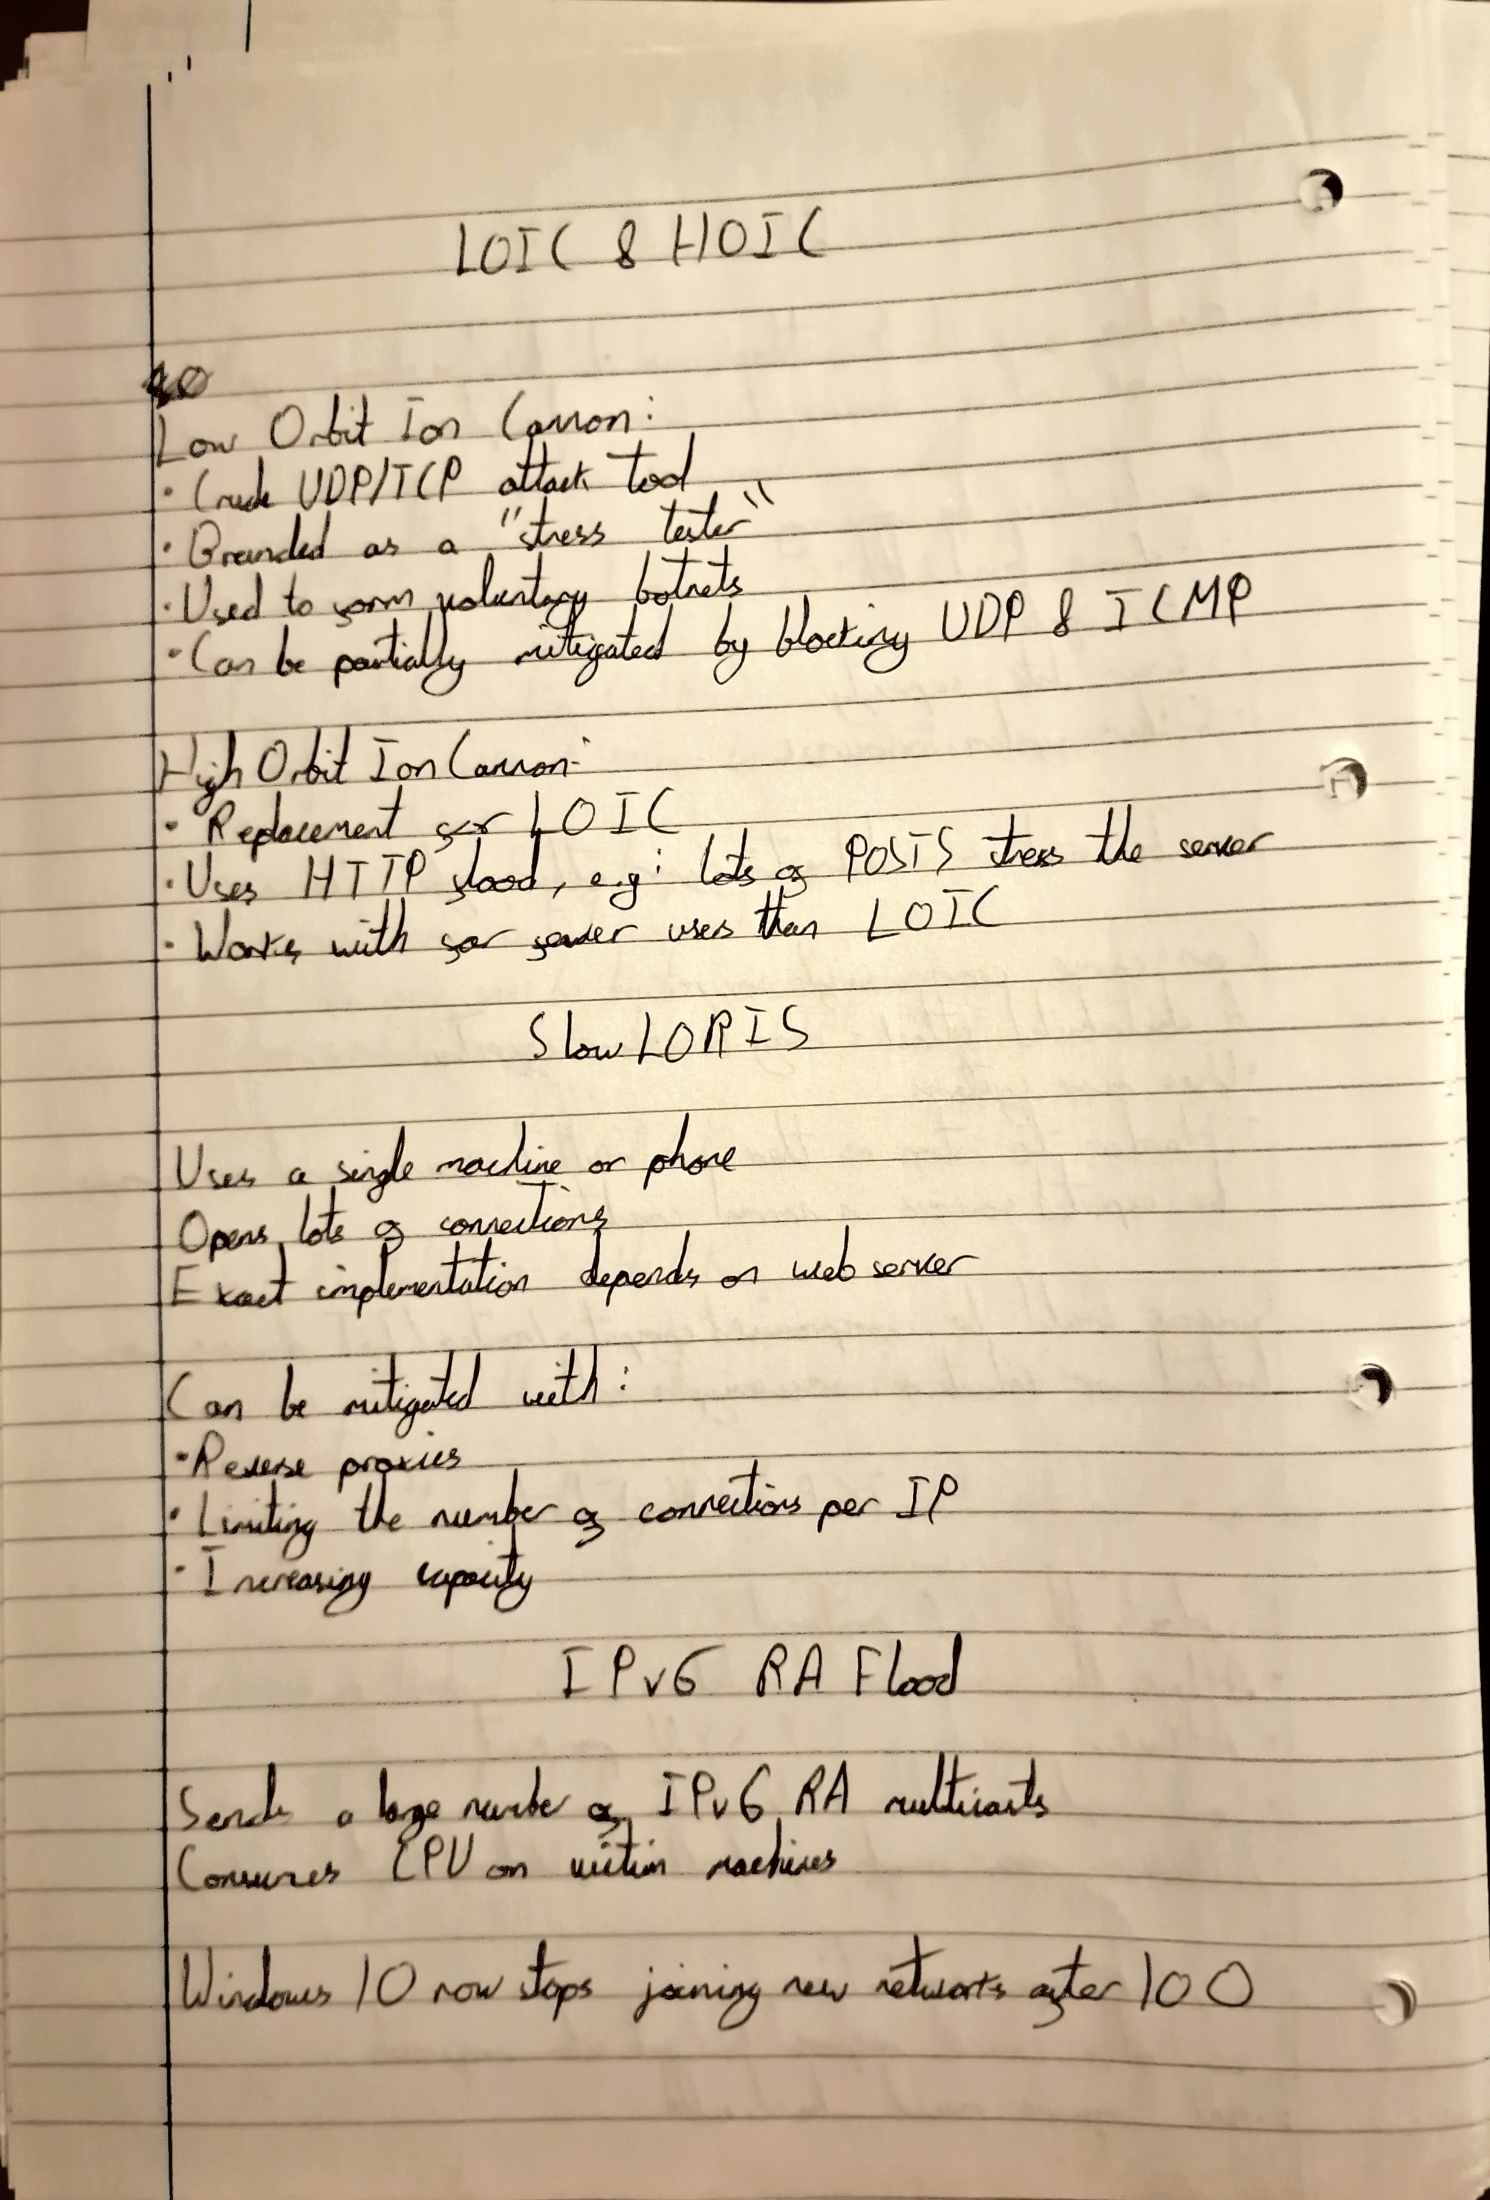 LOIC & HOIC
Low Orbit Ion Cannon:
• Crude UDP/TCP attack tool
• Branded as a "stress tester"
• Used to form voluntary botnets
• Can be partially mitigated by blocking UDP & ICMP
High Orbit Ion Cannon:
• Replacement for LOIC
• Uses HTTP flood, e.g: lots of POSTS stress the server
• Works with far fewer users than LOIC
SlowLORIS
Uses a single machine or phone
Opens lots of connections
Exact implementation depends on web server
Can be mitigated with:
• Reverse proxies
• Limiting the number of connections per IP
• Increasing capacity
IPv6 RA Flood
Sends a large number of IPv6 RA multicasts
Consumes CPU on victim machines
Windows 10 now stops joining new networks after 100